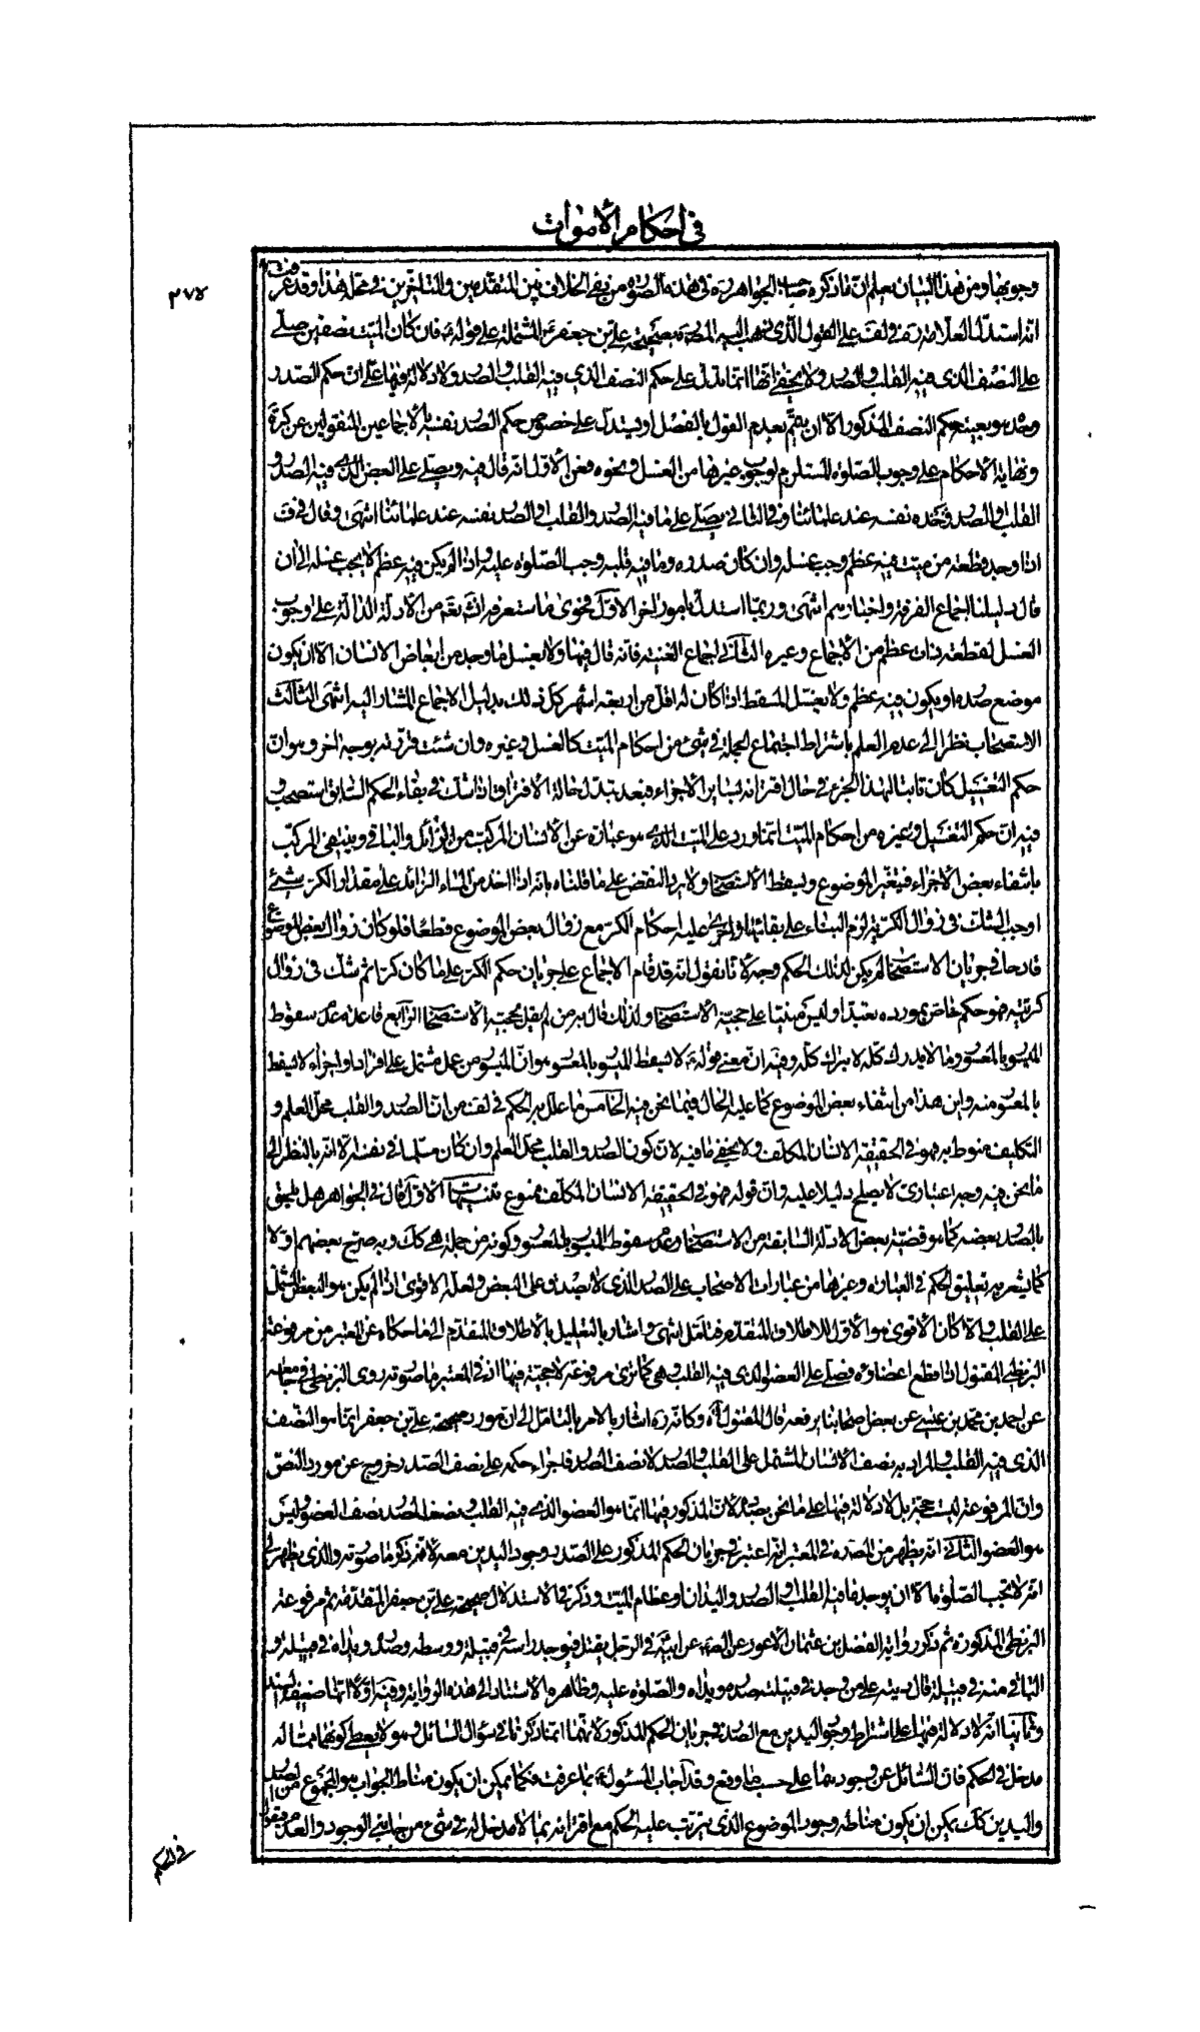 في احكام الأموات
٣٧٤
وجوبها ومن هذا البيان يعلم ان ما ذكره صاحب الجواهر ره في هذه الصورة من نفي الخلاف بين المتقدمين والمتأخرين في محله هذا وقد عرفت
انه استدل العلامة ره في لف على القول الذي ذهب اليه المص ره بصحيحة علي بن جعفر ع المشتملة على قوله ع فان كان الميت نصفين صلى
على النصف الذي فيه القلب والصدر ولا يخفى انها انما تدل على حكم النصف الذي فيه القلب والصدر ولا دلالة فيها على ان حكم الصدر
وحده هو بعينه حكم النصف المذكور الا ان يتمم بعدم القول بالفصل او يستدل على خصوص حكم الصدر نفسه بالاجماعين المنقولين عن كره
ونهاية الأحكام على وجوب الصلوة المستلزم لوجوب غيرها من الغسل ونحوه فعن الأول انه قال فيه ويصلى على البعض الذي فيه الصدر و
القلب او الصدر وحده نفسه عند علمائنا وفي الثاني يصلى على ما فيه الصدر والقلب او الصدر نفسه عند علمائنا انتهى وقال في ف
اذا وجد قطعة من ميت فيه عظم وجب غسله وان كان صدره وما فيه قلبه وجب الصلوة عليه واذا لم يكن فيه عظم لا يجب غسله الى ان
قال دليلنا اجماع الفرقة واخبارهم انتهى وربما استدل بامور اخر الاول فحوى ما ستعرفه انش تعه من الأدلة الدالة على وجوب
الغسل لقطعة ذات عظم من الأجماع وغيره الثاني اجماع الغنية فانه قال فيها ولا يغسل ما وجد من ابعاض الانسان الا ان يكون
موضع صدره او يكون فيه عظم ولا يغسل السقط اذا كان له اقل من اربعة اشهر كل ذلك بدليل الاجماع المشار اليه انتهى الثالث
الاستصحاب نظرا الى عدم العلم باشتراط اجتماع الجملة في شئ من احكام الميت كالغسل وغيره وان شئت قررته بوجه اخر وهو ان
حكم التغسيل كان ثابتا لهذا الجزء في حال اقترانه لساير الأجزاء فبعد تبدل حالة الأفتراق اذا شك في بقاء الحكم السابق استصحب و
فيه ان حكم التغسيل وغيره من احكام الميت انما ورد على الميت الذي هو عبارة عن الأنسان المركب من الزائل والباقي وينتفى المركب
بانتفاء بعض الأجزاء فيتغير الموضوع ويسقط الأستصحاب ولا يرد النقض على ما قلناه بانه اذا اخذ من الماء الزائد على مقدار الكر شيئ
اوجب الشك في زوال الكرية لزم البناء على بقائها واجرى عليه احكام الكر مع زوال بعض الموضوع قطعا فلو كان زوال بعض الموضوع
قادحا في جريان الاستصحاب لم يكن لذلك الحكم وجه لأنا نقول انه قد قام الاجماع على جريان حكم الكر على ما كان كرا ثم شك في زوال
كريته فهو حكم خاص بمورده تعبدا وليس مبنيا على حجية الأستصحاب ولذلك قال به من لم يقل بحجية الأستصحاب الرابع قاعدة عدم سقوط
الميسور بالمعسور وما لا يدرك كله لا يترك كله وفيه ان معنى قوله ع لا يسقط الميسور بالمعسور هو ان الميسور من عمل مشتمل على افراد او اجزاء لا يسقط
بالمعسور منه واين هذا من انتفاء بعض الموضوع كما عليه الحال فيما نحن فيه الخامس ما علل به الحكم في لف من ان الصدر والقلب محل العلم و
التكليف منوط به فهو في الحقيقة الانسان المكلف ولا يخفى ما فيه لان كون الصدر والقلب محل العلم وان كان مسلما في نفسه الا انه بالنظر الى
ما نحن فيه وجه اعتباري لا يصلح دليلا عليه وان قوله فهو في الحقيقة الانسان المكلف ممنوع تنبيهات الأول قال في الجواهر هل يلحق
بالصدر بعضه كما هو قضية بعض الادلة السابقة من الاستصحاب وعدم سقوط الميسور بالمعسور وكونه من جملة هي كك وبه صرح بعضهم او لا
كما يشعر به تعليق الحكم في العبارة وغيرها من عبارات الاصحاب على الصدر الذي لا يصدق على البعض ولعله الاقوى اذا لم يكن هو البعض المشتمل
على القلب والا كان الأقوى هو الأول للاطلاق المتقدم فتامل انتهى واشار بالتعليل بالأطلاق المتقدم الى ما حكاه عن المعتبر من مرفوعة
البزنطي المقتول اذا قطع اعضاؤه فصلي على العضو الذي فيه القلب وهي كما ترى مرفوعة لا حجية فيها اذ في المعتبر ما صورته روى البزنطي في جامعه
عن احمد بن محمد بن عيسى عن بعض اصحابنا يرفعه قال المقتول اه وكانه ره اشار بالامر بالتامل الى ان مورد صحيحة علي بن جعفر انما هو النصف
الذي فيه القلب والمراد به نصف الانسان المشتمل على القلب والصدر لا نصف الصدر فاجراء حكمه على نصف الصدر خروج عن مورد النص
وان المرفوعة ليست حجة بل لا دلالة فيها على ما نحن بصدده لأن المذكور فيها انما هو العضو الذي فيه القلب ونصف الصدر نصف العضو وليس
هو العضو الثاني انه يظهر من المص ره في المعتبر انه اعتبر في جريان الحكم المذكور على الصدر وجود اليدين معه لانه ذكر ما صورته والذي يظهر لي
انه لا تجب الصلوة الا ان يوجد ما فيه القلب او الصدر واليدان او عظام الميت وذكر في الاستدلال صحيحة علي بن جعفر المتقدمة ثم مرفوعة
البزنطي المذكورة ثم ذكر رواية الفضل بن عثمان الأعور عن الص ع عن ابيه ع في الرجل يقتل فيوجد راسه في قبيلة ووسطه وصدره ويداه في قبيلة و
الباقي منه في قبيلة قال ديته على من وجد في قبيلته صدره ويداه والصلوة عليه وظاهره الأستناد الى هذه الرواية وفيه اولا انها ضعيفة السند
وثانيا انه لا دلالة فيها على اشتراط وجود اليدين مع الصدر في جريان الحكم المذكور لأنهما انما ذكرتا في سؤال السائل وهو لا يعطي كونهما مما له
مدخل في الحكم فان السائل عن وجودهما على حسب ما وقع وقد اجاب المسئول ع بما عرفت فكما يمكن ان يكون مناط الجواب هو المجموع من الصدر
واليدين كك يمكن ان يكون مناطه وجود الموضوع الذي يترتب عليه الحكم مع اقترانه بما لا مدخل له في شئ من جانبي الوجود والعدم
في الحكم